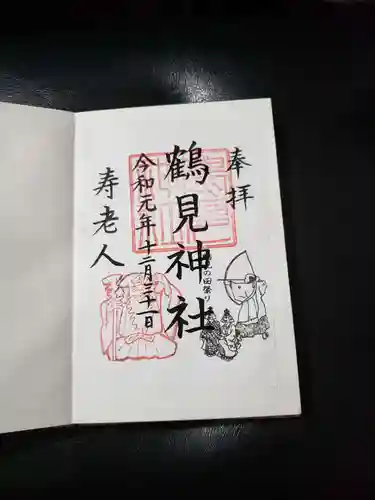 奉拝
鶴見神社
の田祭り
令和元年十二月三十一日
寿老人